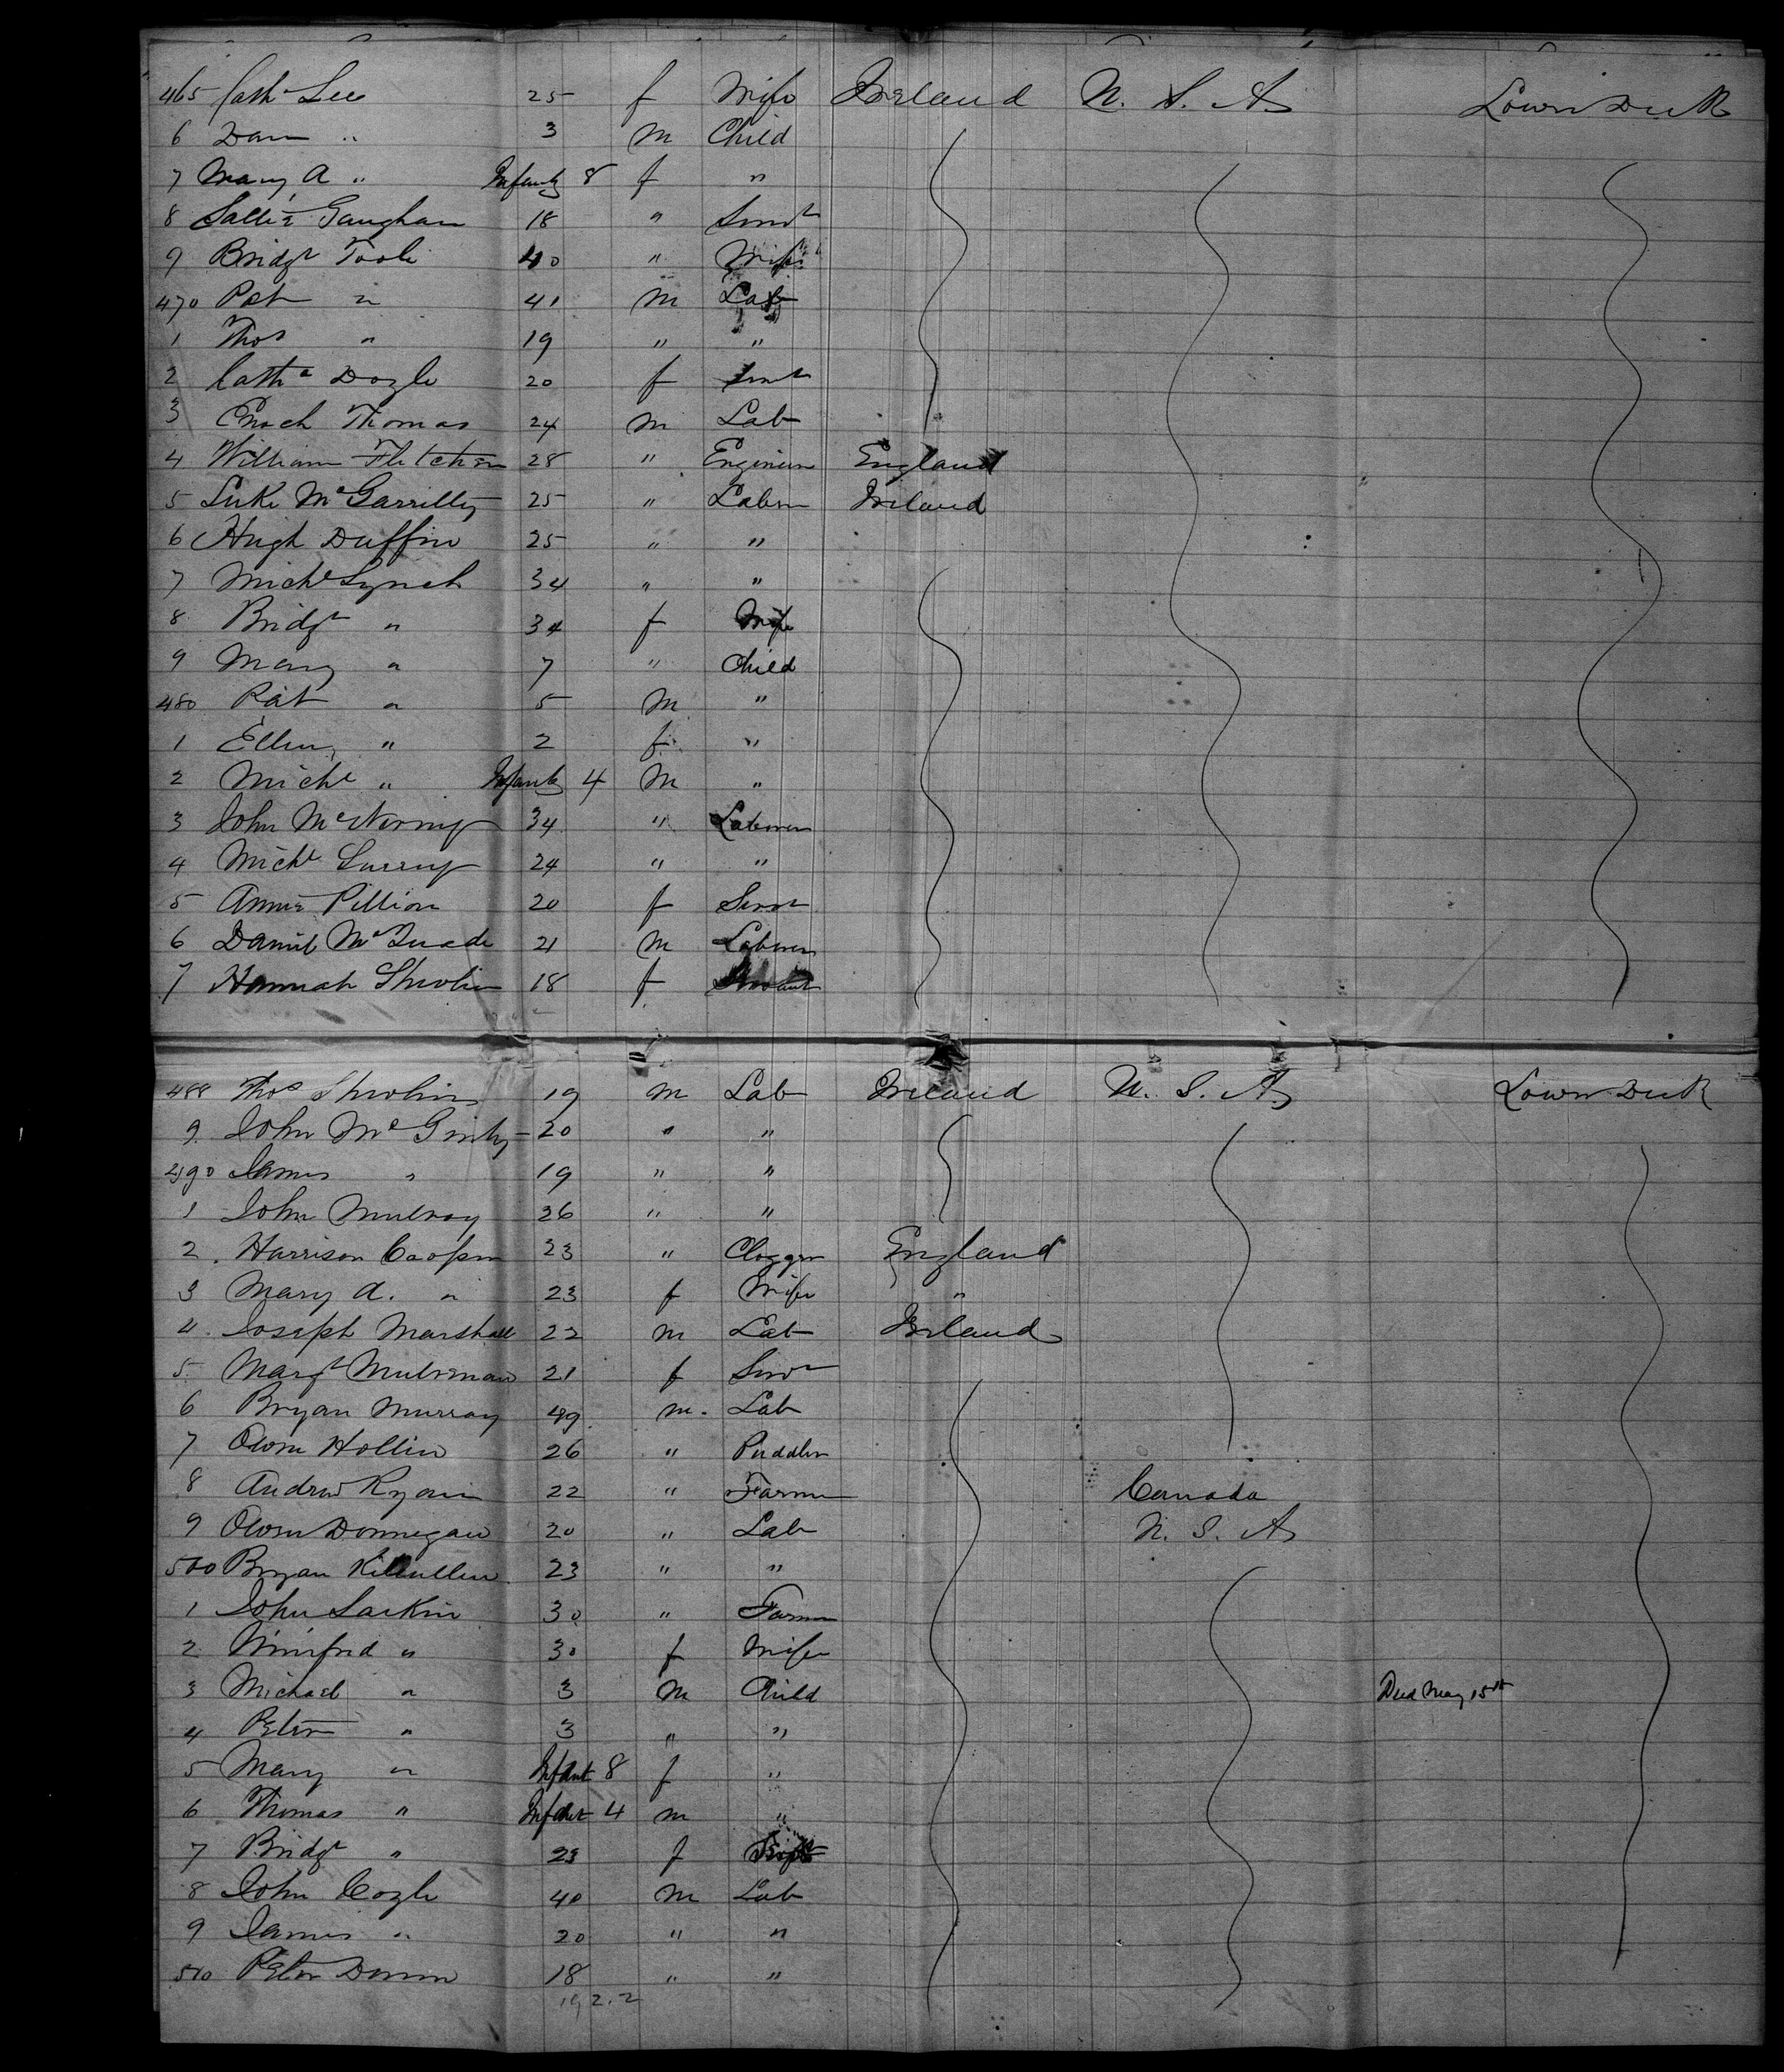 465 Cath Lee 25 f Wife Ireland U. S. A. Lower Deck
6 Dan " 3 m Child
7 Mary A " Infant 8 f "
8 Sallie Gaughan 18 " Servt
9 Bridgt Toole 40 " Wife
470 Pat " 41 m Lab
1 Thos " 19 " "
2 Catha Doyle 20 f Servt
3 Enoch Thomas 24 m Lab
4 William Fletcher 28 " Engineer England
5 Luke McGarrilty 25 " Laborer Ireland
6 Hugh Duffin 25 " "
7 Michl Lynch 34 " "
8 Bridgt " 34 f Wife
9 Mary " 7 " Child
480 Pat " 5 m "
1 Ellen " 2 f "
2 Michl " Infant 4 m "
3 John 34 " Laborer
4 Michl 24 " "
5 Annie Pillion 20 f Servt
6 Daniel McQuade 21 m Laborer
7 Hannah Shevlin 18 f Servant
488 Thos Shevlin 19 m Lab Ireland U. S. A. Lower Deck
9 John McGinty 20 " "
490 James " 19 " "
1 John Mulroy 26 " "
2 Harrison Cooper 23 " Clogger England
3 Mary A. " 23 f Wife "
4 Joseph Marshall 22 m Lab Ireland
5 Margt 21 f Servt
6 Bryan Murray 49 m. Lab
7 Owen Hollin 26 " Puddler
8 Andrew Ryan 22 " Farmer Canada
9 Owen Donnegan 20 " Lab U. S. A.
500 Bryan Kilcullen 23 " "
1 John Larkin 30 " Farmer
2 Winifred " 30 f Wife
3 Michael " 3 m Child Died May 15th
4 Peter " 3 " "
5 Mary " Infant 8 f "
6 Thomas " Infant 4 m "
7 Bridgt " 23 f
8 John Coyle 40 m Lab
9 James " 20 " "
510 Peter Dunn 18 " "